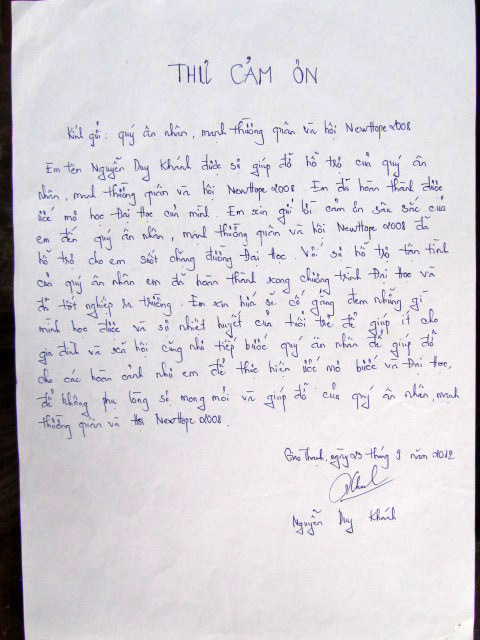 THƯ CẢM ƠN
Kính gửi: quý ân nhân, mạnh thường quân và hội NewHope 2008
Em tên Nguyễn Duy Khánh được sự giúp đỡ hỗ trợ của quý ân
nhân, mạnh thường quân và hội NewHope 2008. Em đã hoàn thành được
ước mơ học Đại Học của mình. Em xin gửi lời cảm ơn sâu sắc của
em đến quý ân nhân, mạnh thường quân và hội NewHope 2008 đã
hỗ trợ cho em suốt chặng đường Đại Học. Với sự hỗ trợ tận tình
của quý ân nhân em đã hoàn thành xong chương trình Đại Học và
đã tốt nghiệp ra trường. Em xin hứa sẽ cố gắng đem những gì
mình học được và sự nhiệt huyết của tuổi trẻ để giúp ít cho
gia đình và xã hội cũng như tiếp bước quý ân nhân để giúp đỡ
cho các hoàn cảnh như em để thực hiện ước mơ bước vào Đại Học,
để không phụ lòng sự mong mỏi và giúp đỡ của quý ân nhân, mạnh
thường quân và hội NewHope 2008.
ngày 23 tháng 9 năm 2012
Nguyễn Duy Khánh